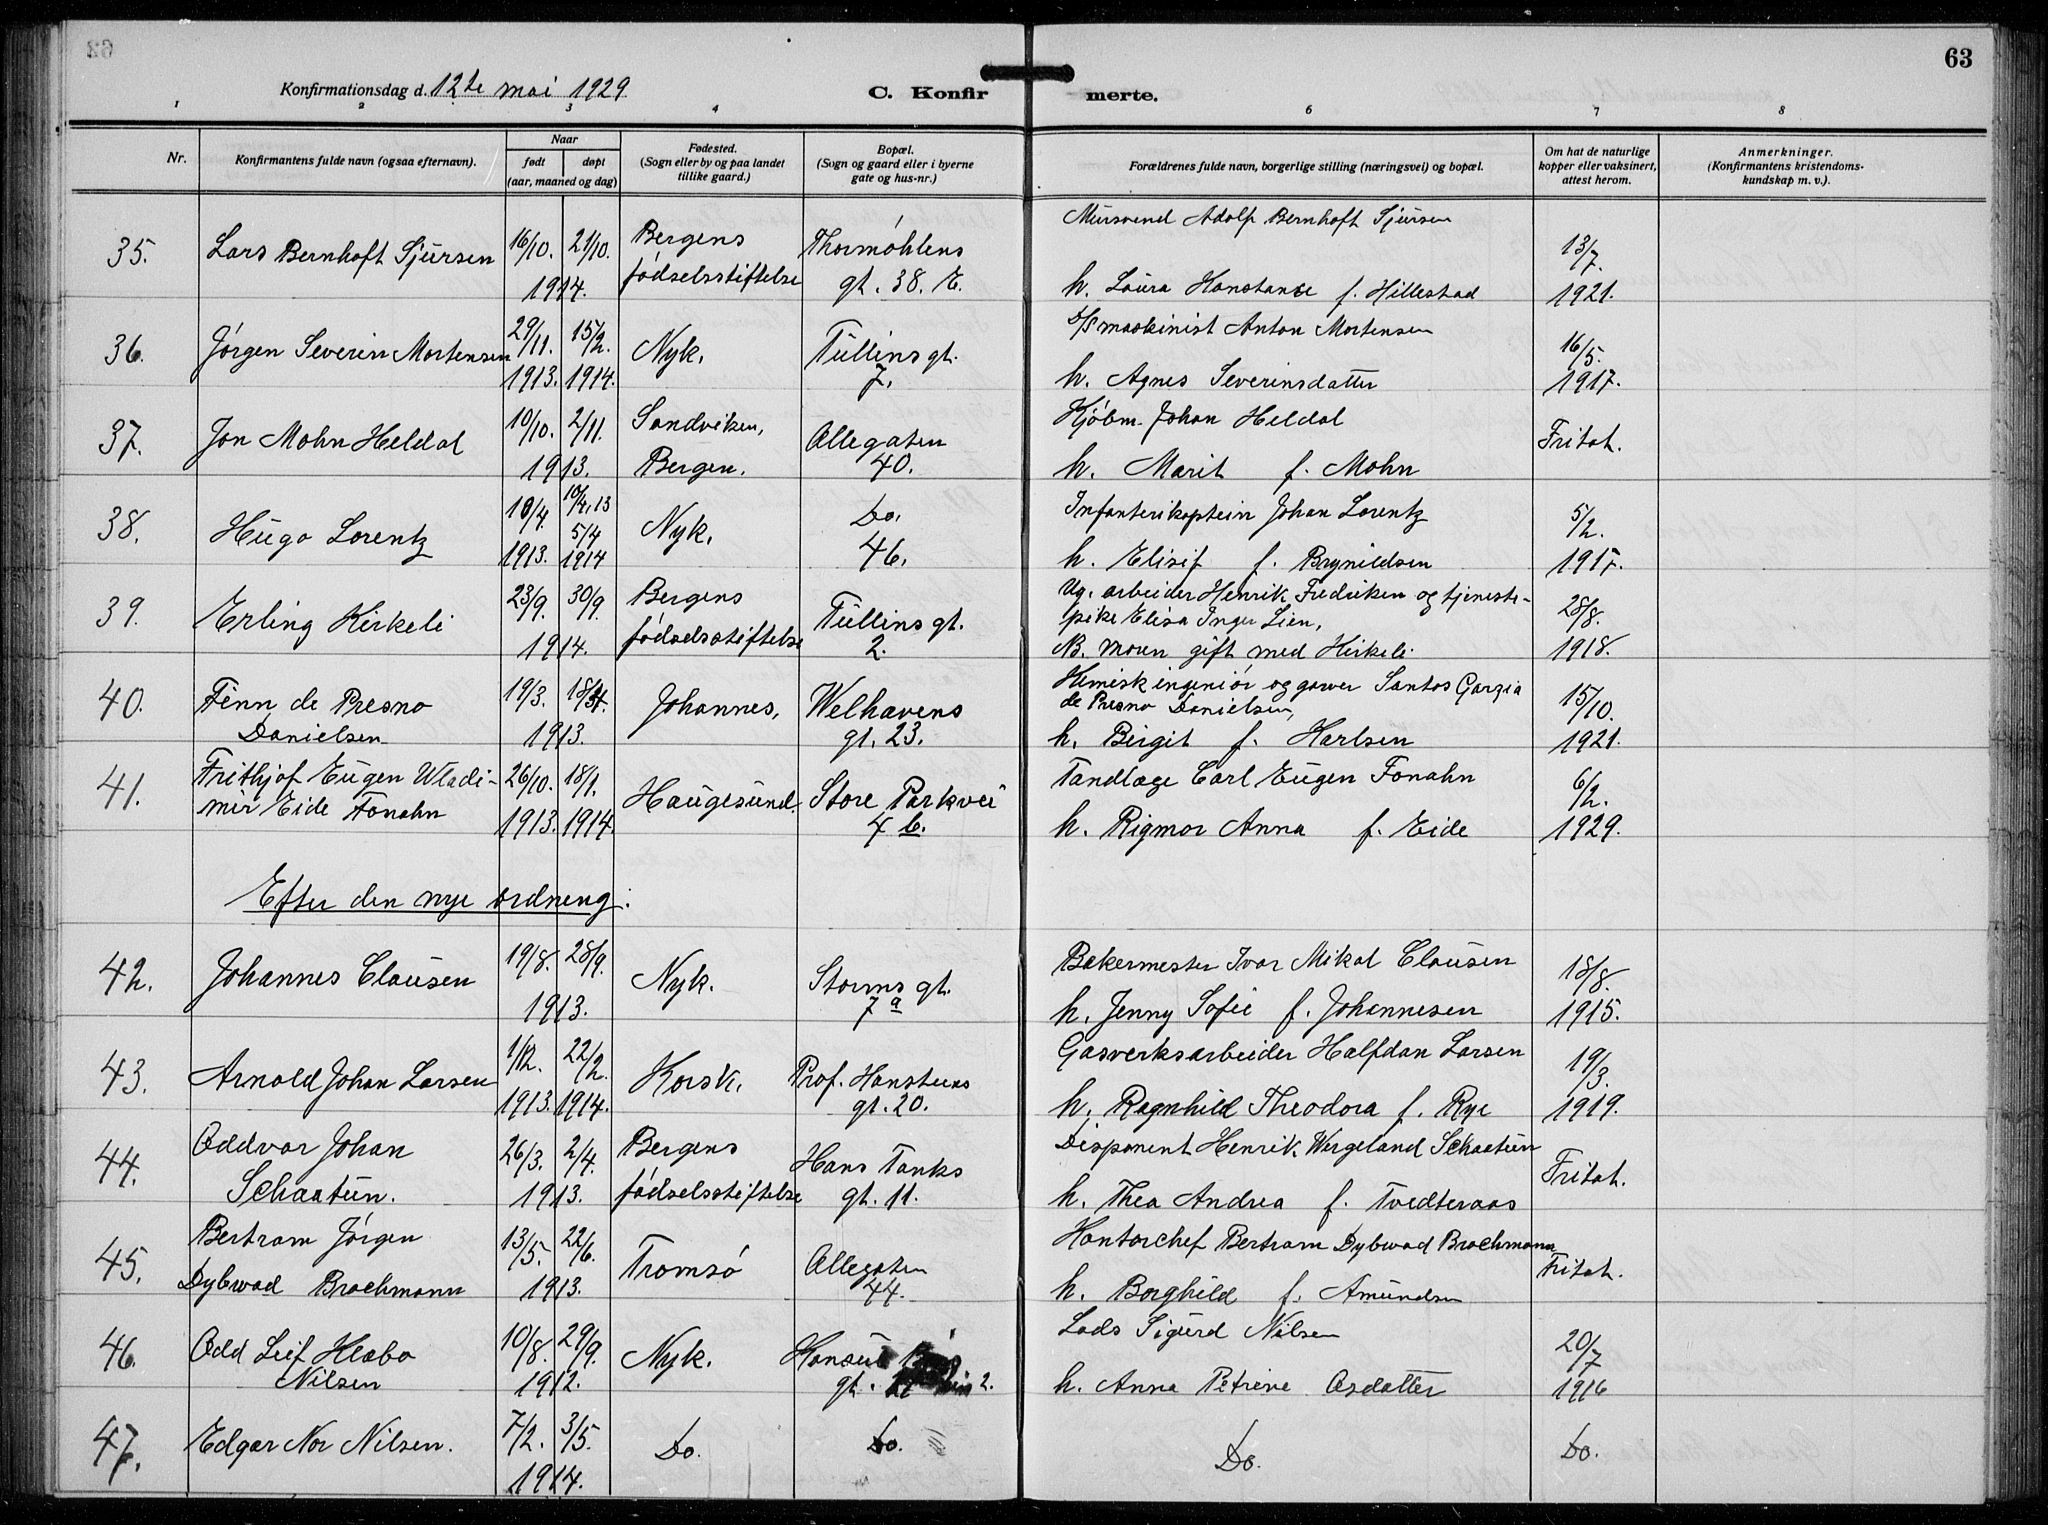 63
Konfirmationsdag d. 12te mai 1929
C. Konfir merte.
1 2 3 4 6 7 8
Nr.
Konfirmantens fulde navn (ogsaa efternavn).
Naar
født døpt
(aar, maaned og dag)
Fødested.
(Sogn eller by og paa landet
tillike gaard.)
Bopæl.
(Sogn og gaard eller i byerne
gate og hus-nr.)
Forældrenes fulde navn, borgerlige stilling (næringsvei) og bopæl.
Om hat de naturlige
kopper eller vaksinert,
attest herom.
Anmerkninger.
(Konfirmantens kristendoms-
kundskap m. v.).
35. Lars Bernhoft Sjursen 16/10. 21/10. 1914. Bergens fødselsstiftelse Thormøhlens gt. 38. E. Mursvend Adolf Bernhoft Sjursen h. Laura Konstance f. Hillestad 13/7. 1921.
36. Jörgen Severin Mortensen 29/11. 1913. 15/2. 1914. Nyk. Tullins gt. 7. D/S maskinist Anton Mortensen h. Agnes Severinsdatter 16/5. 1917.
37. Jon Mohn Heldal 10/10. 2/11. 1913. Sandviken, Bergen. Allegaten 40. Kjöbm. Johan Heldal h. Marit f. Mohn Fritat.
38. Hugo Lorentz 10/4. 1913. 10/4. 13 5/4 1914 Nyk. Do. 46. Infanterikaptein Johan Lorentz h. Elisif f. Brynildsen 5/2. 1917.
39. Erling Kirkeli 23/9. 30/9. 1914. Bergens fødselsstiftelse Tullins gt. 2. Ug. arbeider Henrik Fredriksen og tjeneste-
pike Elisa Inger Lien,
NB. moren gift med Kirkeli. 28/8. 1918.
40. Finn de Presno
Danielsen 19/3. 18/4. 1913. Johannes, Welhavens gt. 23. Kemisk ingeniör og garver Santos Garzia
de Presno Danielsen,
h. Birgit f. Karlsen 15/10. 1921.
41. Frithjof Eugen Wladi-
mir Eide Fonahn 26/10. 1913. 18/1. 1914. Haugesund. Store Parkvei 4 b. Tandlæge Carl Eugen Fonahn
h. Rigmor Anna f. Eide 6/2. 1929.
Efter den nye ordning:
42. Johannes Clausen 19/8. 28/9. 1913. Nyk. Storms gt. 7 a Bakermester Ivar Mikal Clausen
h. Jenny Sofie f. Johannesen 18/8. 1915.
43. Arnold Johan Larsen 1/12. 1913. 22/2. 1914. Korsk. Prof. Hansteens gt. 20. Gasverksarbeider Halfdan Larsen
h. Ragnhild Theodora f. Rye 19/3. 1919.
44. Oddvar Johan
Schaatun. 26/3. 2/4. 1913. Bergens fødselsstiftelse Hans Tanks gt. 11. Disponent Henrik Wergeland Schaatun
h. Thea Andrea f. Tvedteraas Fritat.
45. Bertram Jörgen
Dybwad Brochmann 13/5. 22/6. 1913. Tromsö Allegaten 44. Kontorchef Bertram Dybwad Brochmann
h. Borghild f. Amundsen Fritat.
46. Odd Leif Hesbo
Nilsen 10/8. 29/9. 1912. Nyk. Konsul gt. 2. Lods Sigurd Nilsen
h. Anna Petrine Asdatter 20/7 1916
47. Edgar Nor Nilsen. 7/2. 3/5. 1914. Do. Do. Do. Do.